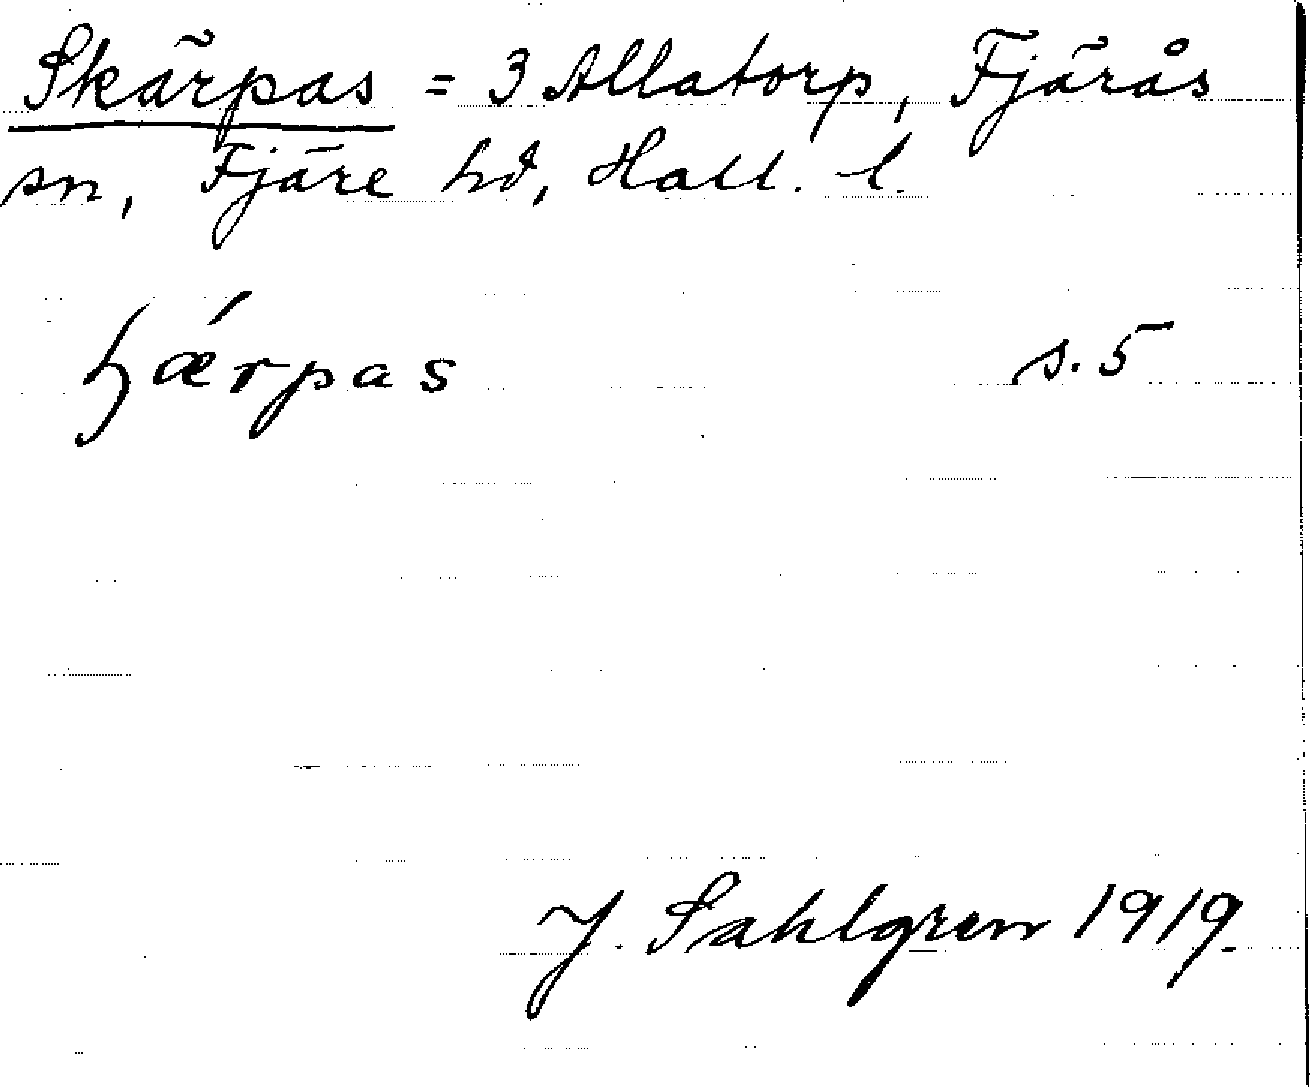 Skärpas = 3 Allatorp, Fjärås
sn, Fjäre hd, Hall. l.
ɧǽrpas s. 5
J. Sahlgren 1919.